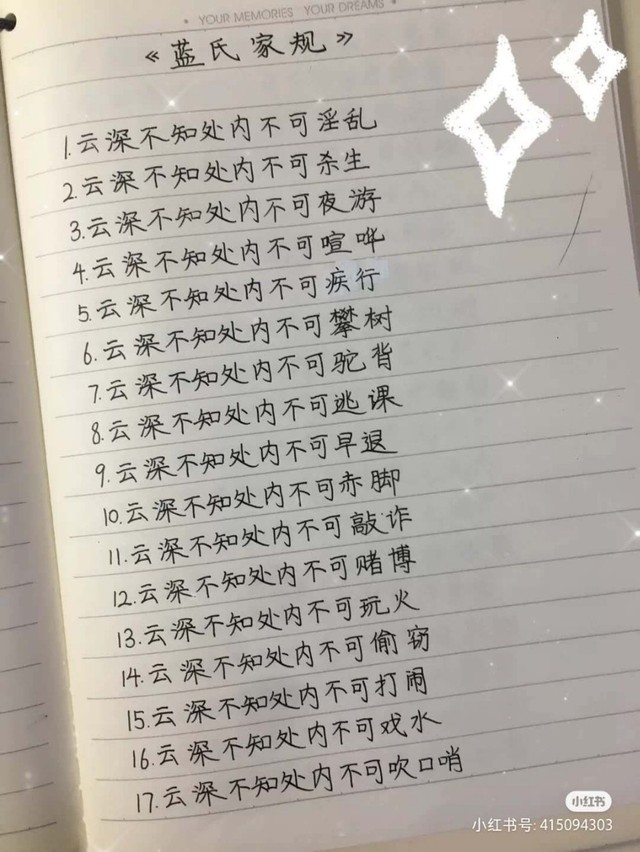 YOUR MEMORIES YOUR DREAMS
《蓝氏家规》
1.云深不知处内不可淫乱
2.云深不知处内不可杀生
3.云深不知处内不可夜游
4.云深不知处内不可喧哗
5.云深不知处内不可疾行
6.云深不知处内不可攀树
7.云深不知处内不可驼背
8.云深不知处内不可逃课
9.云深不知处内不可早退
10.云深不知处内不可赤脚
11.云深不知处内不可敲诈
12.云深不知处内不可赌博
13.云深不知处内不可玩火
14.云深不知处内不可偷窃
15.云深不知处内不可打闹
16.云深不知处内不可戏水
17.云深不知处内不可吹口哨
小红书
小红书号: 415094303